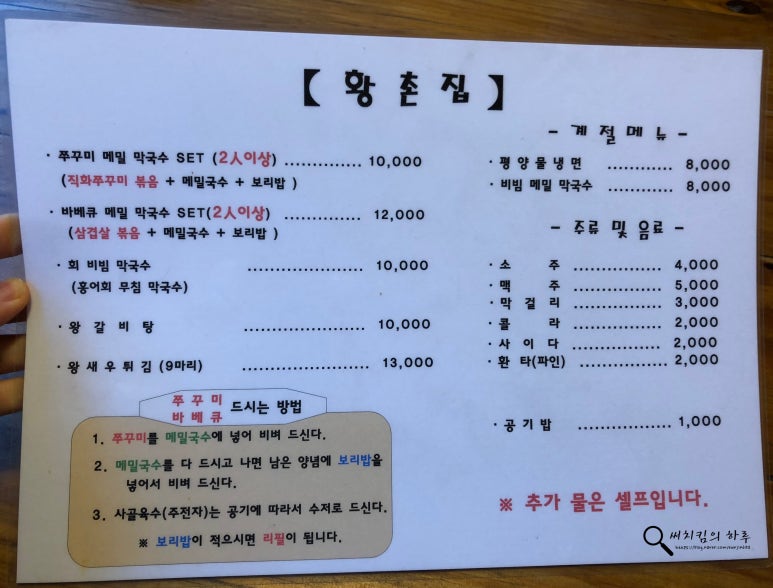 【 황 촌 집 】
· 쭈꾸미 메밀 막국수 SET (2人이상) .............. 10,000
(직화쭈꾸미 볶음 + 메밀국수 + 보리밥 )
· 바베큐 메밀 막국수 SET(2人이상) .............. 12,000
(삼겹살 볶음 + 메밀국수 + 보리밥 )
· 회 비빔 막국수 ..................... 10,000
(홍어회 무침 막국수)
· 왕 갈 비 탕 ..................... 10,000
· 왕 새 우 튀 김 (9마리) ..................... 13,000
쭈 꾸 미
바 베 큐 드시는 방법
1. 쭈꾸미를 메밀국수에 넣어 비벼 드신다.
2. 메밀국수를 다 드시고 나면 남은 양념에 보리밥을
넣어서 비벼 드신다.
3. 사골육수(주전자)는 공기에 따라서 수저로 드신다.
※ 보리밥이 적으시면 리필이 됩니다.
- 계 절 메 뉴 -
· 평 양 물 냉 면 ............ 8,000
· 비빔 메밀 막국수 ............ 8,000
- 주류 및 음료 -
· 소 주 ................ 4,000
· 맥 주 ................ 5,000
· 막 걸 리 ................ 3,000
· 콜 라 ................ 2,000
· 사 이 다 ................ 2,000
· 환 타(파인) ................ 2,000
· 공 기 밥 ................ 1,000
※ 추가 물은 셀프입니다.
써치킴의 하루